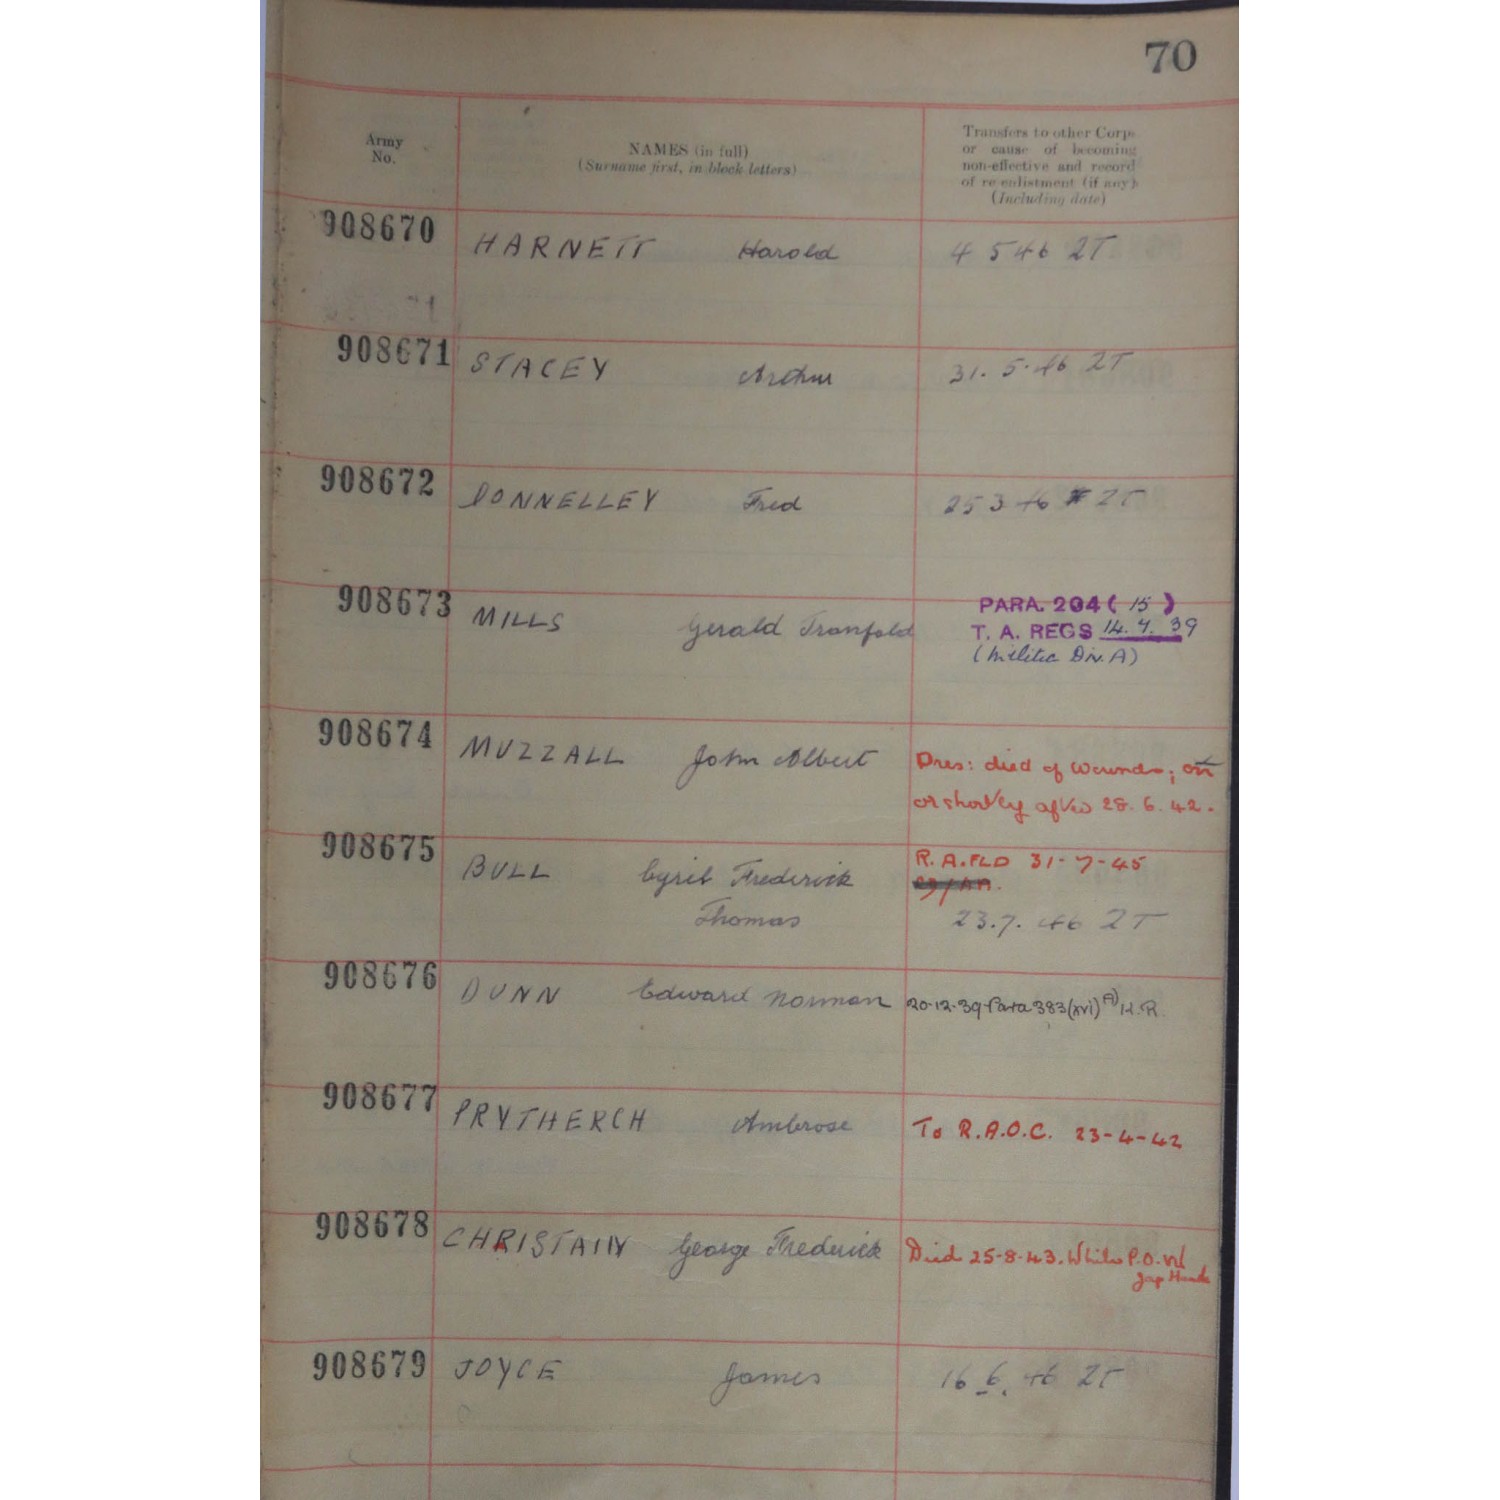 70
Army
No.
NAMES (in full)
(Surname first, in block letters)
Transfers to other Corps
or cause of becoming
non-effective and record
of re-enlistment (if any)
(Including date)
908670 HARNETT Harold 4 5 46 ZT
908671 STACEY Arthur 31. 5. 46 ZT
908672 DONNELLEY Fred 25 3 46 ZT
908673 MILLS Gerald Tranfold
PARA. 204 ( 15 )
T. A. REGS 14. 7. 39
(Militia Div. A)
908674 MUZZALL John Albert Pres: died of wounds; on
or shortly after 28. 6. 42.
908675 BULL Cyril Frederick R.A.FLD 31-7-45
Thomas 23.7. 46 ZT
908676 DUNN Edward Norman 20-12-39 Para 383 (xvi) A) K.R.
908677 PRYTHERCH Ambrose To R.A.O.C. 23-4-42
908678 CHRISTAIN George Frederick Died 25-8-43. While P.O.W
Jap Hands
908679 JOYCE James 16 6. 46 ZT